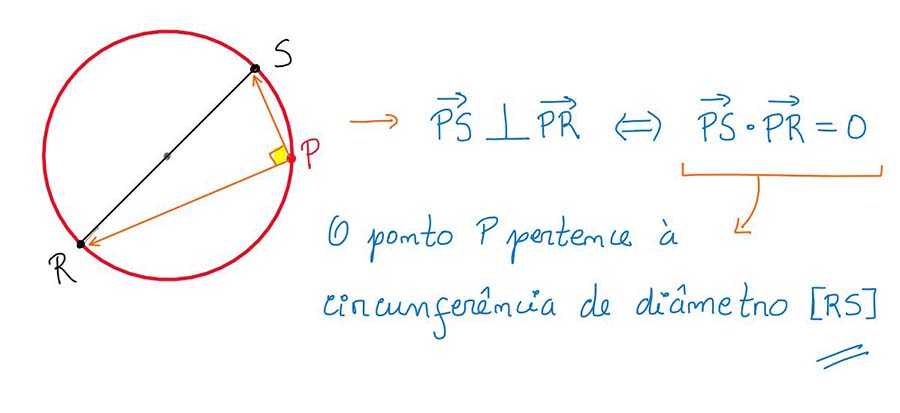 S
P
R
→ PS⃗ ⊥ PR⃗ ⇔ PS⃗ · PR⃗ = 0
O ponto P pertence à
circunferência de diâmetro [RS]